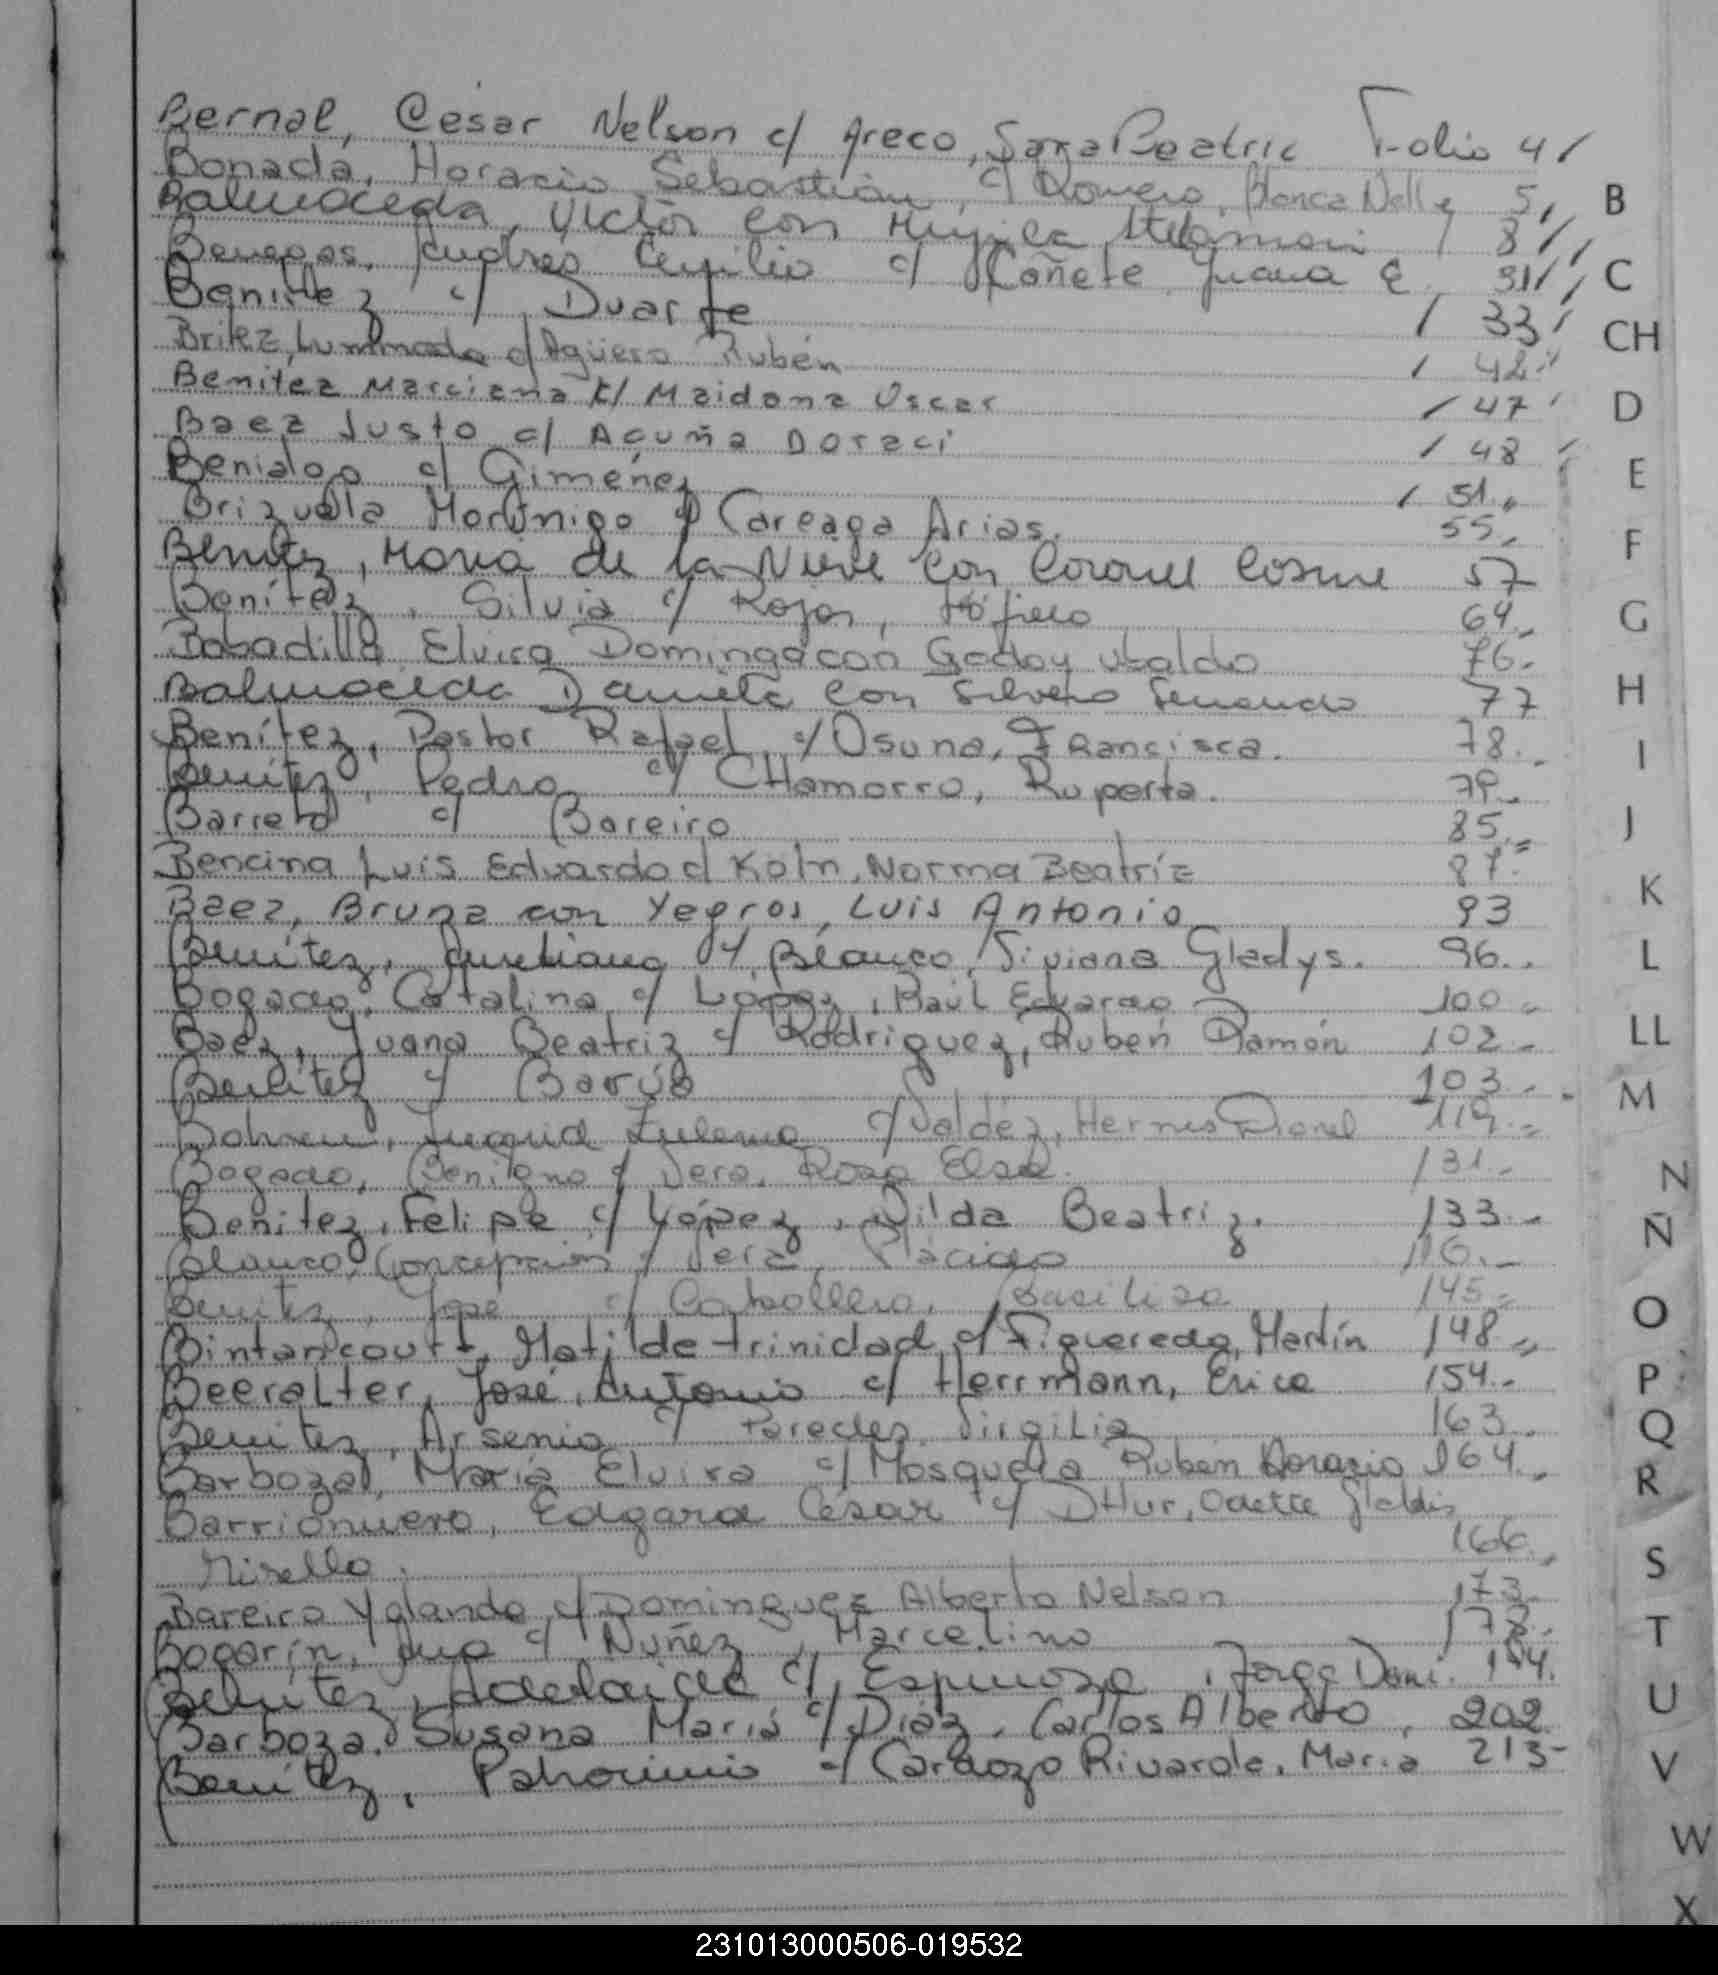 Bernal, César Nelson c/ Areco, Sara Beatriz Folio 4
Bonada, Horacio Sebastián, c/ Romero, Blanca Nelly 5
B
Balmaceda, Victor con Mujica 8
Benegas, Andres Cecilio c/ Cañete Juana E. 31
C
Benitez c/ Duarte 33
CH
Britez, c/ Agüero Rubén 42
Benitez Marciana c/ Maidana Oscar 47
D
Baez Justo c/ Acuña Doraci 48
Benialgo c/ Giménez 51
E
Brizuela Morínigo c/ Careaga Arias 55
F
Benitez, Maria de la Nieve con Coronel Cosme 57
Benítez, Silvia c/ Rojas, 64
G
Bobadilla Elvira Dominga con Godoy Ubaldo 76
Balmaceda Daniela con Silvero Fernando 77
H
Benítez, Pastor Rafael, c/ Osuna, Francisca. 78
I
Benitez, Pedro c/ CHamorro, Ruperta. 79
Barreto c/ Bareiro 85
J
Bencina Luis Eduardo c/ Koln, Norma Beatríz 87
Baez, Bruna con Yegros, Luis Antonio 93
K
Benítez, Aureliano c/ Blanco, Viviana Gladys. 96
L
Bogado, Catalina c/ López, Raúl Eduardo 100
Baez, Juana Beatriz c/ Rodriguez, Rubén Ramón 102
LL
Benítez c/ 103
M
c/ Valdéz, Hermes Dionel 119
Bogado, Benigno c/ Vera, Rosa Elsa. 131
N
Benitez, Felipe c/ López, Nilda Beatriz. 133
Ñ
Blanco, Concepción c/ Vera, Plácido
Benitez, José c/ Caballero, Basilisa 145
O
Bintancourt, Matilde trinidad c/ Figueredo, Martín 148
Beeralter, José, Antonio c/ Herrmann, Erica 154
P
Benitez, Arsenio c/ Paredes Virgilia 163
Q
Barboza, María Elvira c/ Mosqueda Rubén Horacio 164
R
Barrionuevo, Edgard César c/ DHur, Odette Gladis
Mirella. 166
S
Bareiro Yolanda c/ Dominguez Alberto Nelson 173
T
Bogarín, Ana c/ Núñez, Marcelino 178
Benítez, Adelaida c/ Espinoza, Jorge Dami. 194
U
Barboza, Susana María c/ Díaz, Carlos Alberto, 202
Benítez, Patrocinio c/ Cardozo Rivarola, María 213
V
W
X
231013000506-019532